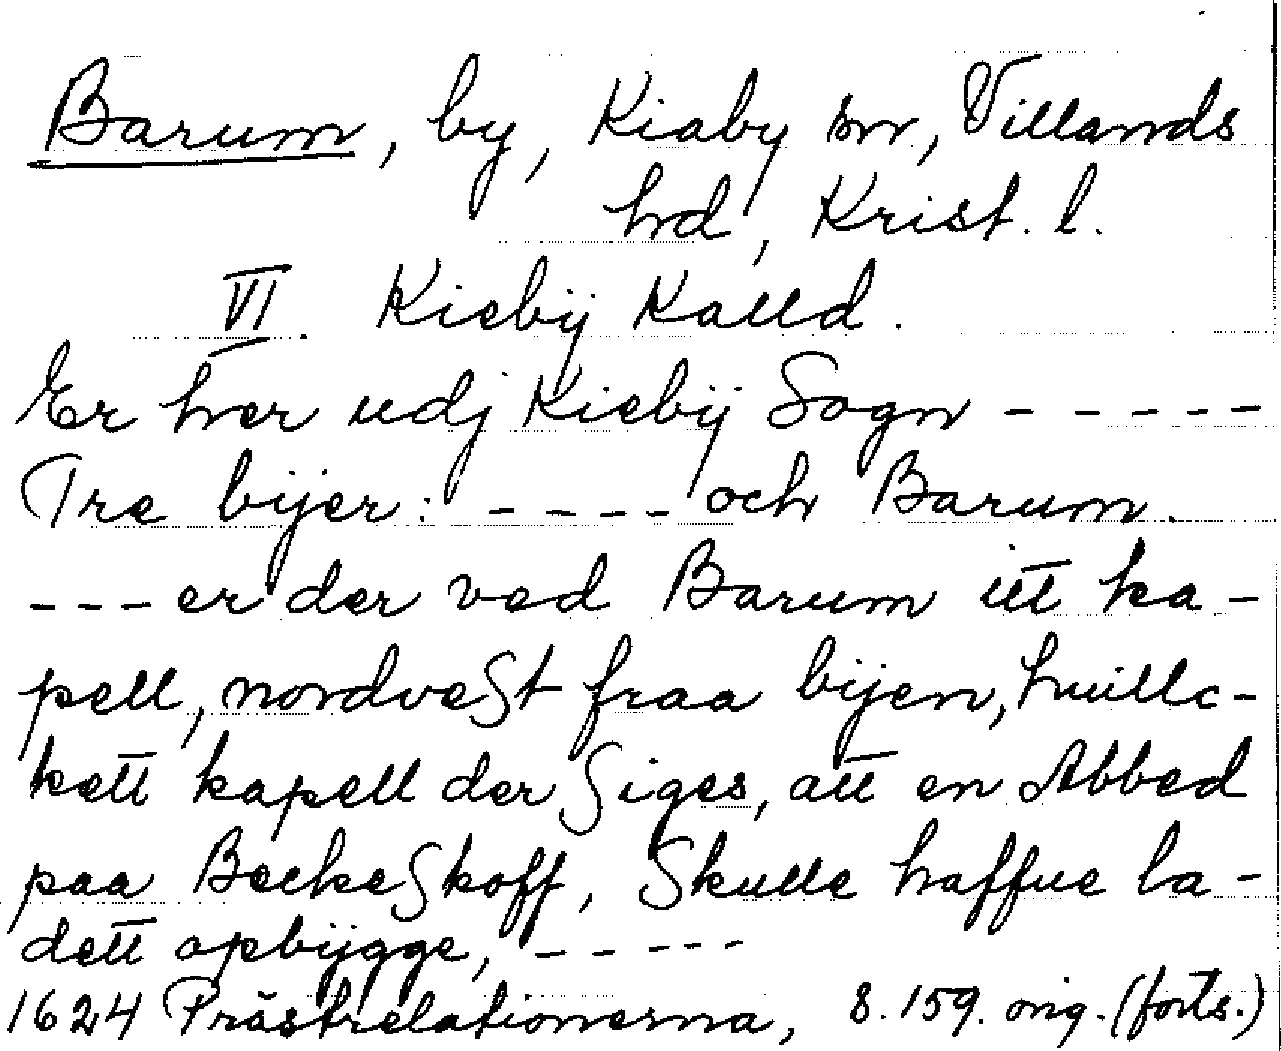 Barum, by, Kiaby sn, Villands
hd, Krist. l.
VI. Kiebÿ Kalld.
Er her udj Kiebÿ Sogn - - - - -
Tre bÿer: - - - - och Barum.
- - - er der ved Barum itt ka-
pell, nordvest fraa bÿen, huillc-
kett kapell der siges, att en Abbed
paa BeckeSkoff, Skulle haffue la-
dett opbÿgge, - - - - -
1624 Prästrelationerna, s. 159. orig. (forts.)